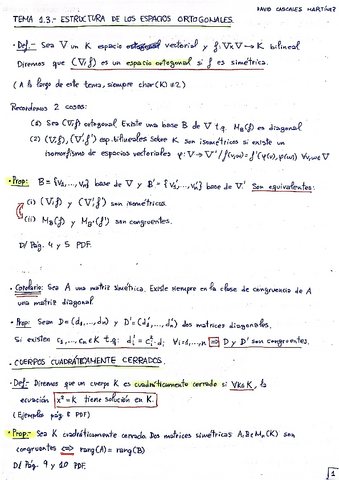 DAVID CASCALES MARTÍNEZ
TEMA 1.3.- ESTRUCTURA DE LOS ESPACIOS ORTOGONALES.
· Def.- Sea V un K espacio vectorial y f: V×V → K bilineal
Diremos que (V,f) es un espacio ortogonal si f es simétrica.
(A lo largo de este tema, siempre char(K)≠2)
Recordemos 2 cosas:
(1) Sea (V,f) ortogonal Existe una base B de V t.q. M_B(f) es diagonal
(2) (V,f), (V',f') esp. bilineales sobre K son isométricos si existe un
isomorfismo de espacios vectoriales φ: V → V' / f(v,w) = f'(φ(v), φ(w)) ∀v,w∈V
· Prop: B = {v₁,...,vₙ} base de V y B' = {v₁',...,vₙ'} base de V'. Son equivalentes:
(i) (V,f) y (V',f') son isométricos.
(ii) M_B(f) y M_B'(f') son congruentes.
D/ Pág. 4 y 5 PDF.
· Corolario: Sea A una matriz simétrica. Existe siempre en la clase de congruencia de A
una matriz diagonal
· Prop: Sean D=(d₁,...,dₙ) y D'=(d₁',...,dₙ') dos matrices diagonales.
Si existen c₁,...,cₙ ∈ K t.q. dᵢ' = cᵢ²·dᵢ ∀i=1,...,n ⇒ D y D' son congruentes.
- CUERPOS CUADRÁTICAMENTE CERRADOS.
· Def- Diremos que un cuerpo K es cuadráticamente cerrado si ∀k∈K, la
ecuación x²=k tiene solución en K.
(Ejemplos pág 8 PDF)
· Prop- Sea K cuadráticamente cerrado Dos matrices simétricas A,B∈Mₙ(K) son
congruentes ⟺ rang(A) = rang(B)
D/ Pág. 9 y 10 PDF.
1